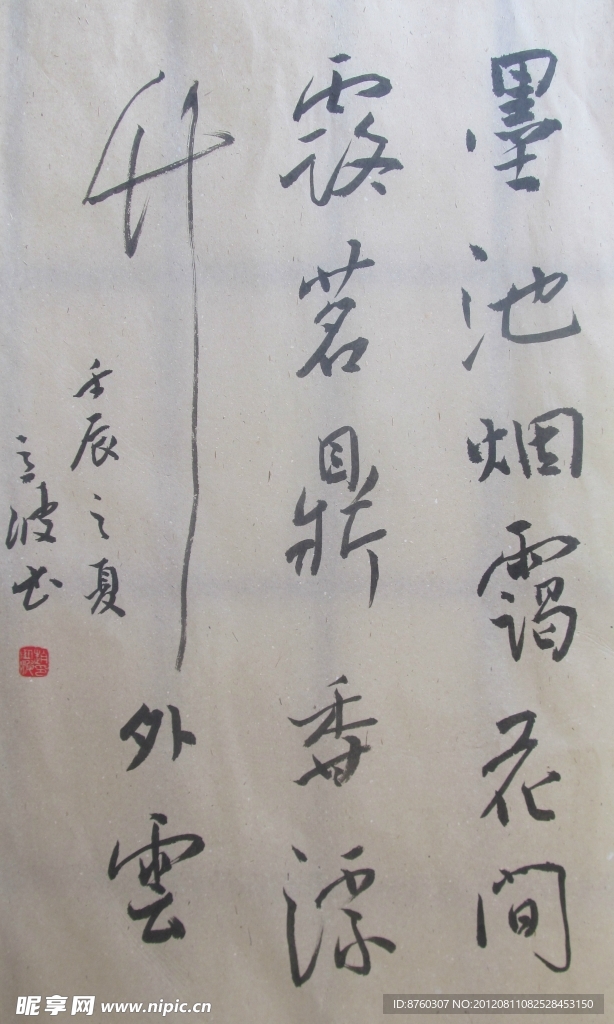 墨池烟霭花间
露茗鼎香漂
竹外雲
壬辰之夏
波书
昵享网 www.nipic.cn
ID:8760307 NO:20120811082528453150